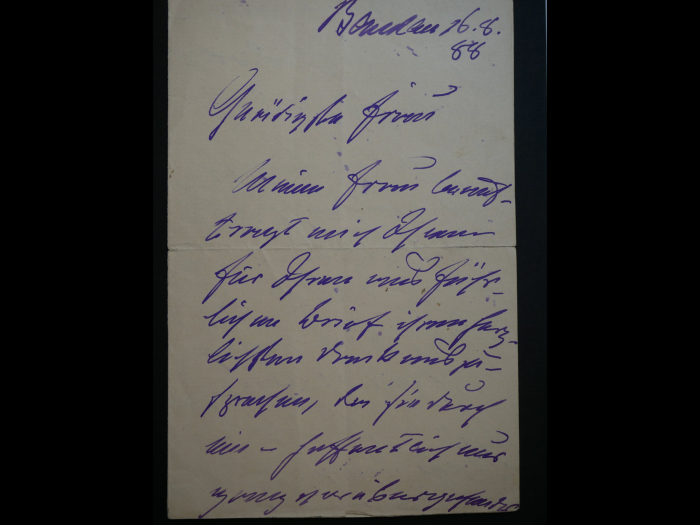 26.8.
88
Gnädigste Frau
Meine Frau beauf-
tragt mich Ihnen
für Ihren ausführ-
lichen Brief ihren herz-
lichsten Dank auszu-
sprechen, da sie durch
ein - hoffentlich nur
ganz vorübergehendes